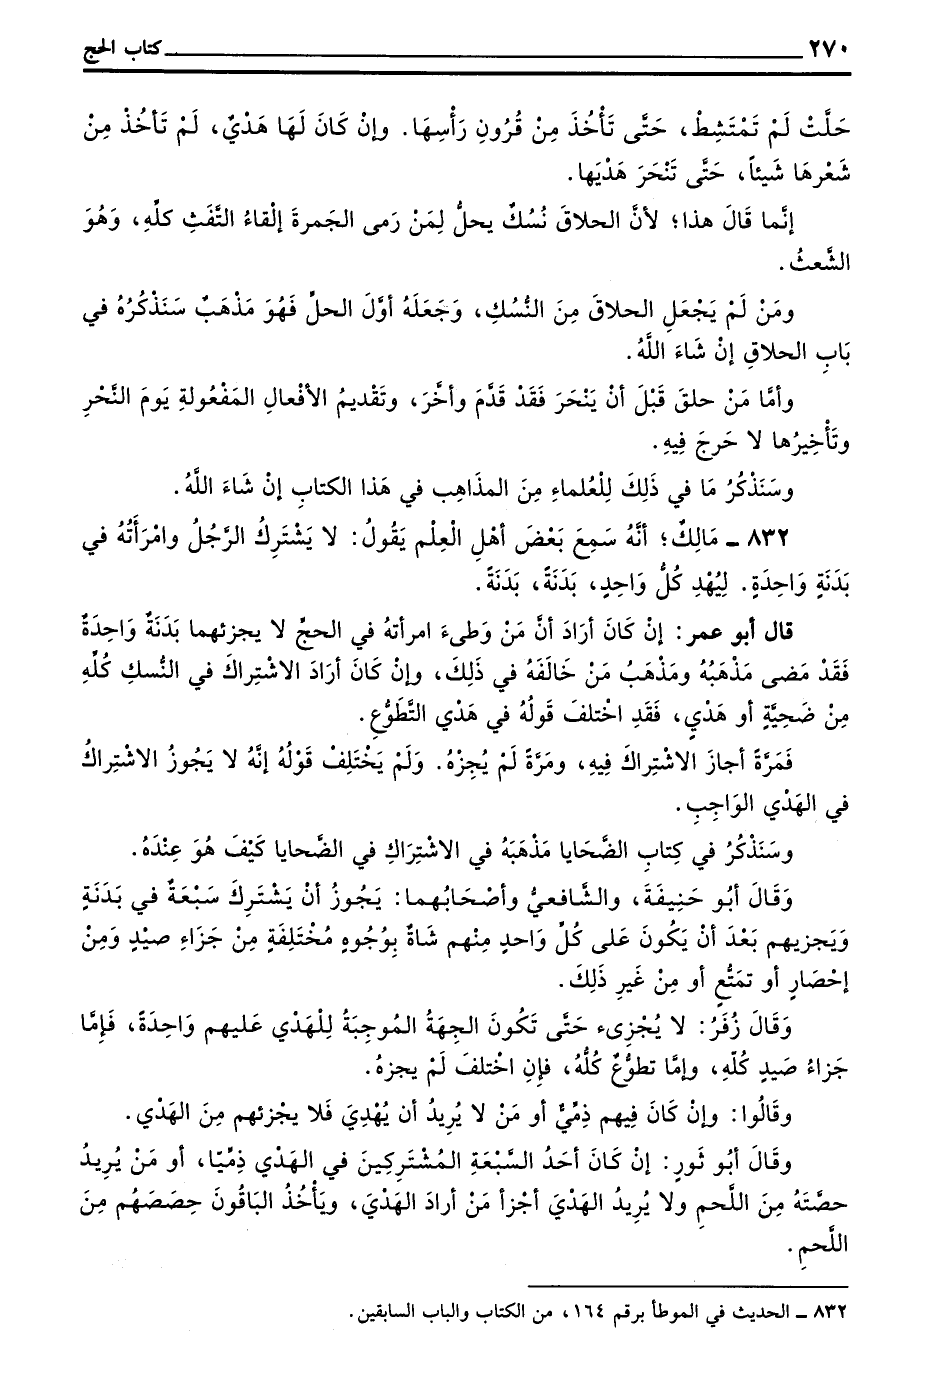 ٢٧٠ كتاب الحج
حَلَّتْ لَمْ تَمْتَشِطْ، حَتَّى تَأْخُذَ مِنْ قُرُونِ رَأْسِهَا. وإنْ كَانَ لَهَا هَدْيٌ، لَمْ تَأخُذْ مِنْ
شَعْرِهَا شَيئاً، حَتَّى تَنْحَرَ هَدْيَها.
إنَّما قَالَ هذا؛ لأنَّ الحلاقَ نُسُكٌ يحلُّ لِمَنْ رَمى الجَمرةَ إلْقاءُ التَّفَثِ كلِّهِ، وَهُوَ
الشَّعثُ.
ومَنْ لَمْ يَجْعَلِ الحلاقَ مِنَ النُّسُكِ، وَجَعَلَهُ أوَّلَ الحلِّ فَهُو مَذْهَبٌ سَنَذْكُرُهُ في
بَابِ الحلاقِ إنْ شَاءَ اللَّهُ.
وأمَّا مَنْ حلقَ قَبْلَ أنْ يَنْحَرَ فَقَدْ قَدَّمَ وأخَّرَ، وتَقْديمُ الأفْعالِ المَفْعُولةِ يَومَ النَّحْرِ
وتَأْخِيرُها لا حَرجَ فِيهِ.
وسَنَذْكُرُ مَا في ذَلِكَ لِلْعُلماءِ مِنَ المذاهِب في هَذا الكتابِ إنْ شَاءَ اللَّهُ.
٨٣٢ ـ مَالِكٌ؛ أنَّهُ سَمِعَ بَعْضَ أهْلِ الْعِلْم يَقُولُ: لا يَشْتَرِكُ الرَّجُلُ وامْرَأَتُهُ في
بَدَنَةٍ وَاحِدَةٍ. لِيُهْدِ كُلُّ وَاحِدٍ، بَدَنَةً، بَدَنَةً.
قال أبو عمر: إنْ كَانَ أرَادَ أنَّ مَنْ وَطىءَ امرأتهُ في الحجِّ لا يجزئهما بَدَنَةٌ وَاحِدَةٌ
فَقَدْ مَضى مَذْهَبُهُ ومَذْهَبُ مَنْ خَالَفَهُ في ذَلِكَ، وإنْ كَانَ أرَادَ الاشْتِراكَ في النُّسكِ كُلِّهِ
مِنْ ضَحِيَّةٍ أو هَدْيٍ، فَقَدِ اخْتلفَ قَولُهُ في هَدْي التَّطَوُّعِ.
فَمَرَّةً أجازَ الاشْتِراكَ فِيهِ، ومَرَّةً لَمْ يُجِزْهُ. وَلَمْ يَخْتَلِفْ قَوْلُهُ إنَّهُ لا يَجُوزُ الاشْتِراكُ
في الهَدْي الوَاجِبِ.
وسَنَذْكُرُ في كِتابِ الضَّحَايا مَذْهَبَهُ في الاشْتِرَاكِ في الضَّحايا كَيْفَ هُوَ عِنْدَهُ.
وَقَالَ أبُو حَنِيفَةَ، والشَّافعيُّ وأصْحَابُهما: يَجُوزُ أنْ يَشْتَرِكَ سَبْعَةٌ في بَدَنَةٍ
وَيَجزيهم بَعْدَ أنْ يَكُونَ عَلى كُلِّ وَاحدٍ مِنْهم شَاةٌ بِوُجُوهٍ مُخْتَلِفَةٍ مِنْ جَزَاءِ صيْدٍ وَمِنْ
إحْصَارٍ أو تمَتُّعٍ أو مِنْ غَيرِ ذَلِكَ.
وَقَالَ زُفَرُ: لا يُجْزِىء حَتَّى تَكُونَ الجِهَةُ المُوجِبَةُ لِلْهَدْي عَليهم وَاحِدَةً، فَإمَّا
جَزَاءُ صَيدٍ كُلِّهِ، وإمَّا تطوُّعٌ كُلُّهُ، فإنِ اخْتلفَ لَمْ يجزهُ.
وقَالُوا: وإنْ كَانَ فِيهم ذِمِّيٌّ أو مَنْ لا يُرِيدُ أن يُهْدِيَ فَلا يجْزئهم مِنَ الهَدْي.
وقَالَ أبُو ثَورٍ: إنْ كَانَ أحَدُ السَّبْعَةِ المُشْتَرِكِينَ في الهَدْي ذِمِّيًا، أو مَنْ يُرِيدُ
حصَّتَهُ مِنَ اللَّحمِ ولا يُرِيدُ الهَدْيَ أجْزأ مَنْ أرادَ الهَدْيَ، ويَأْخُذُ البَاقُونَ حِصَصَهُم مِنَ
اللَّحمِ.
٨٣٢ ـ الحديث في الموطأ برقم ١٦٤، من الكتاب والباب السابقين.